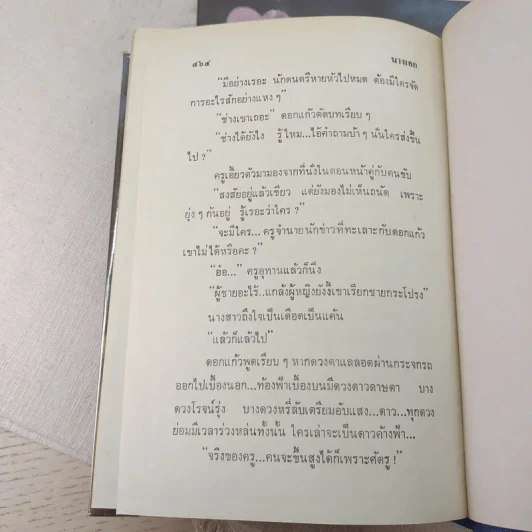 ๔๖๔ นางเอก
“มีอย่างเรอะ นักดนตรีหายหัวไปหมด ต้องมีใครจัด
การอะไรสักอย่างแหง ๆ”
“ช่างเขาเถอะ” ดอกแก้วตัดบทเรียบ ๆ
“ช่างได้ยังไง รู้ไหม...ไอ้คำถามบ้า ๆ นั่นใครส่งขึ้น
ไป ?”
ครูเอี้ยวตัวมามองจากที่นั่งในตอนหน้าคู่กับคนขับ
“สงสัยอยู่แล้วเชียว แต่ยังมองไม่เห็นถนัด เพราะ
ยุ่ง ๆ กันอยู่ รู้เรอะว่าใคร ?”
“จะมีใคร...ครูจำนายนักข่าวที่ทะเลาะกับดอกแก้ว
เขาไม่ได้หรือคะ ?”
“อ๋อ...” ครูอุทานแล้วก็นิ่ง
“ผู้ชายอะไร้..แกล้งผู้หญิงยังงี้เขาเรียกชายกระโปรง”
นางสาวถึงใจเป็นเดือดเป็นแค้น
“แล้วก็แล้วไป”
ดอกแก้วพูดเรียบ ๆ หากดวงตาแลลอดผ่านกระจกรถ
ออกไปเบื้องนอก...ท้องฟ้าเบื้องบนมีดวงดาวดาษดา บาง
ดวงโรจน์รุ่ง บางดวงหรี่ลับเตรียมอับแสง...ดาว...ทุกดวง
ย่อมมีเวลาร่วงหล่นทั้งนั้น ใครเล่าจะเป็นดาวค้างฟ้า...
“จริงของครู...คนจะขึ้นสูงได้ก็เพราะศัตรู !”